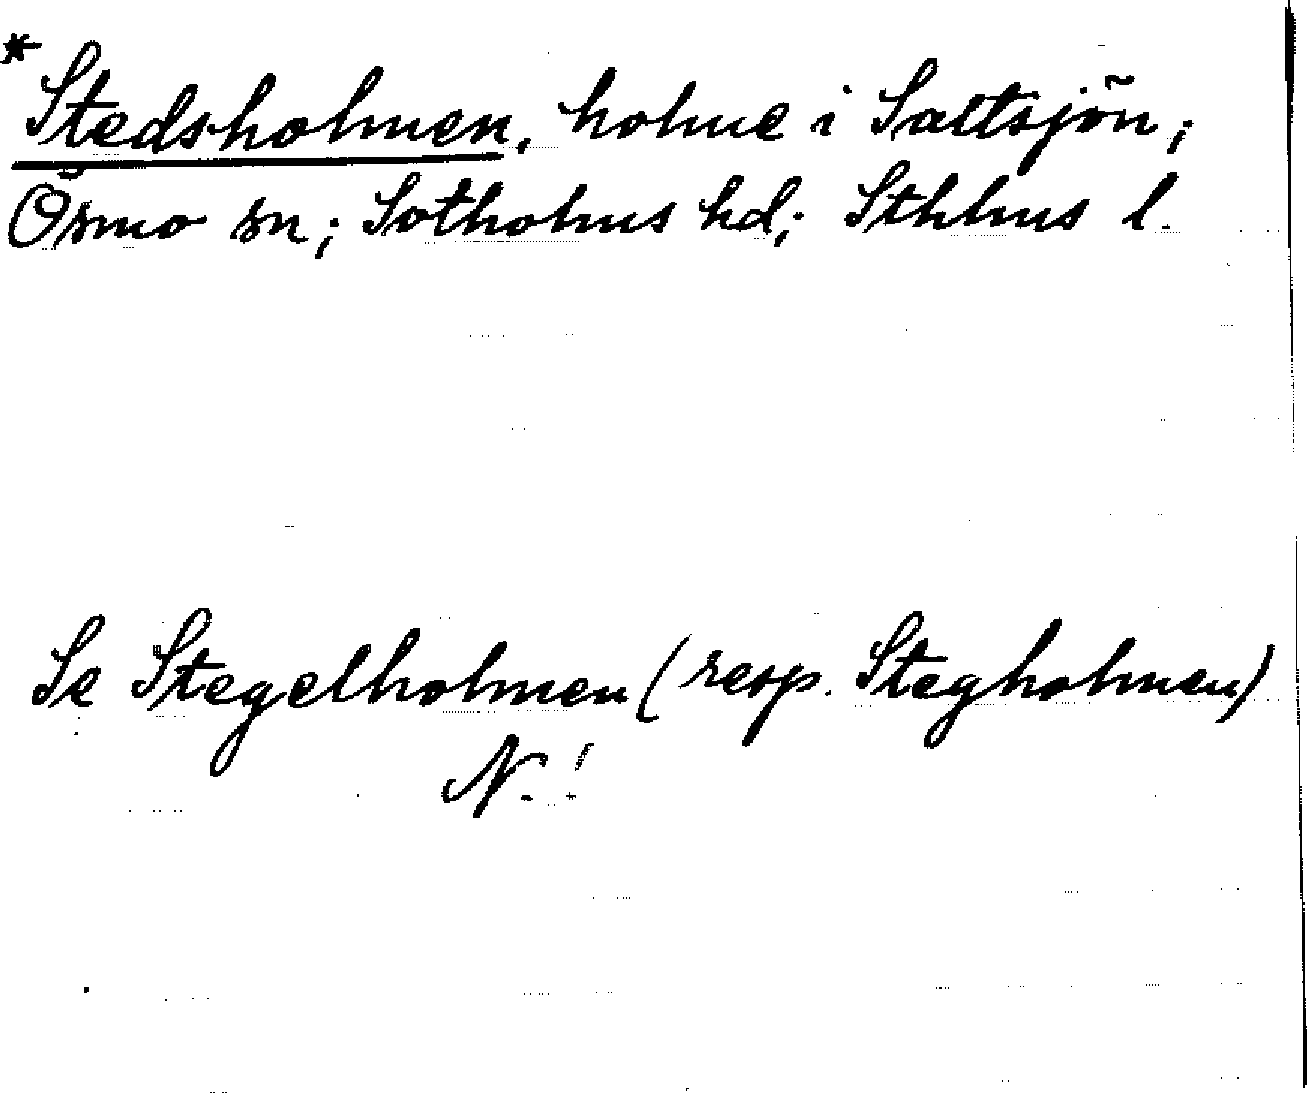 * Stedsholmen, holme i Saltsjön;
Ösmo sn; Sotholms hd; Sthlms l.
Se Stegelholmen (resp. Stegholmen)
N.!